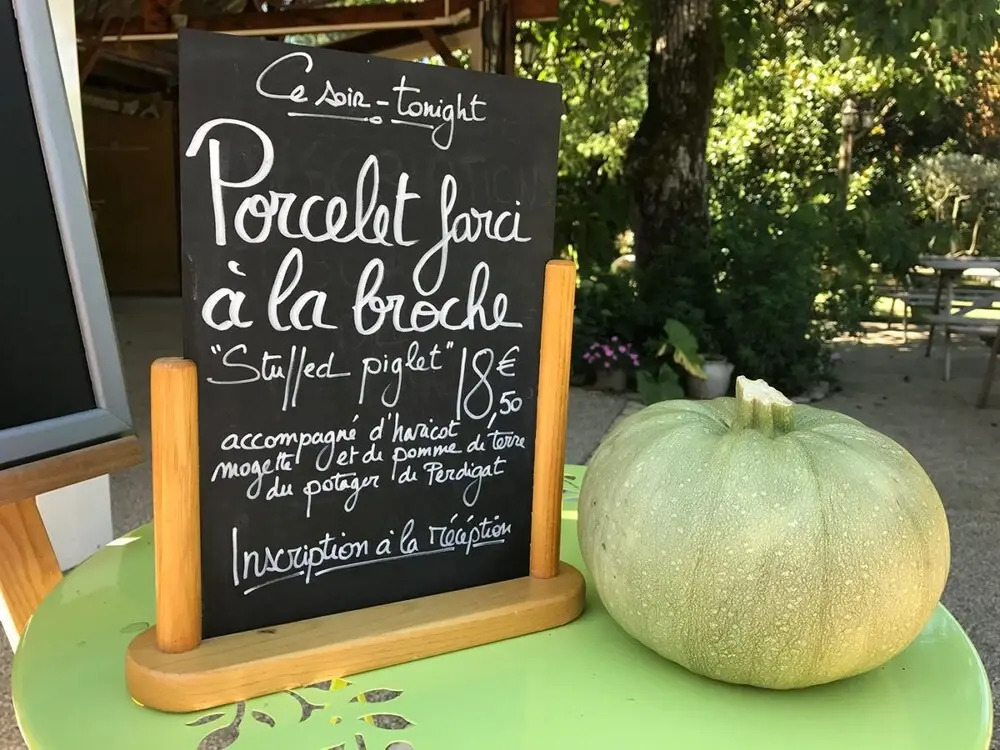 Ce soir - tonight
Porcelet farci
à la broche
"Stuffed piglet" 18€,50
accompagné d'haricot
mogette et de pomme de terre
du potager de Perdigat
Inscription à la réception